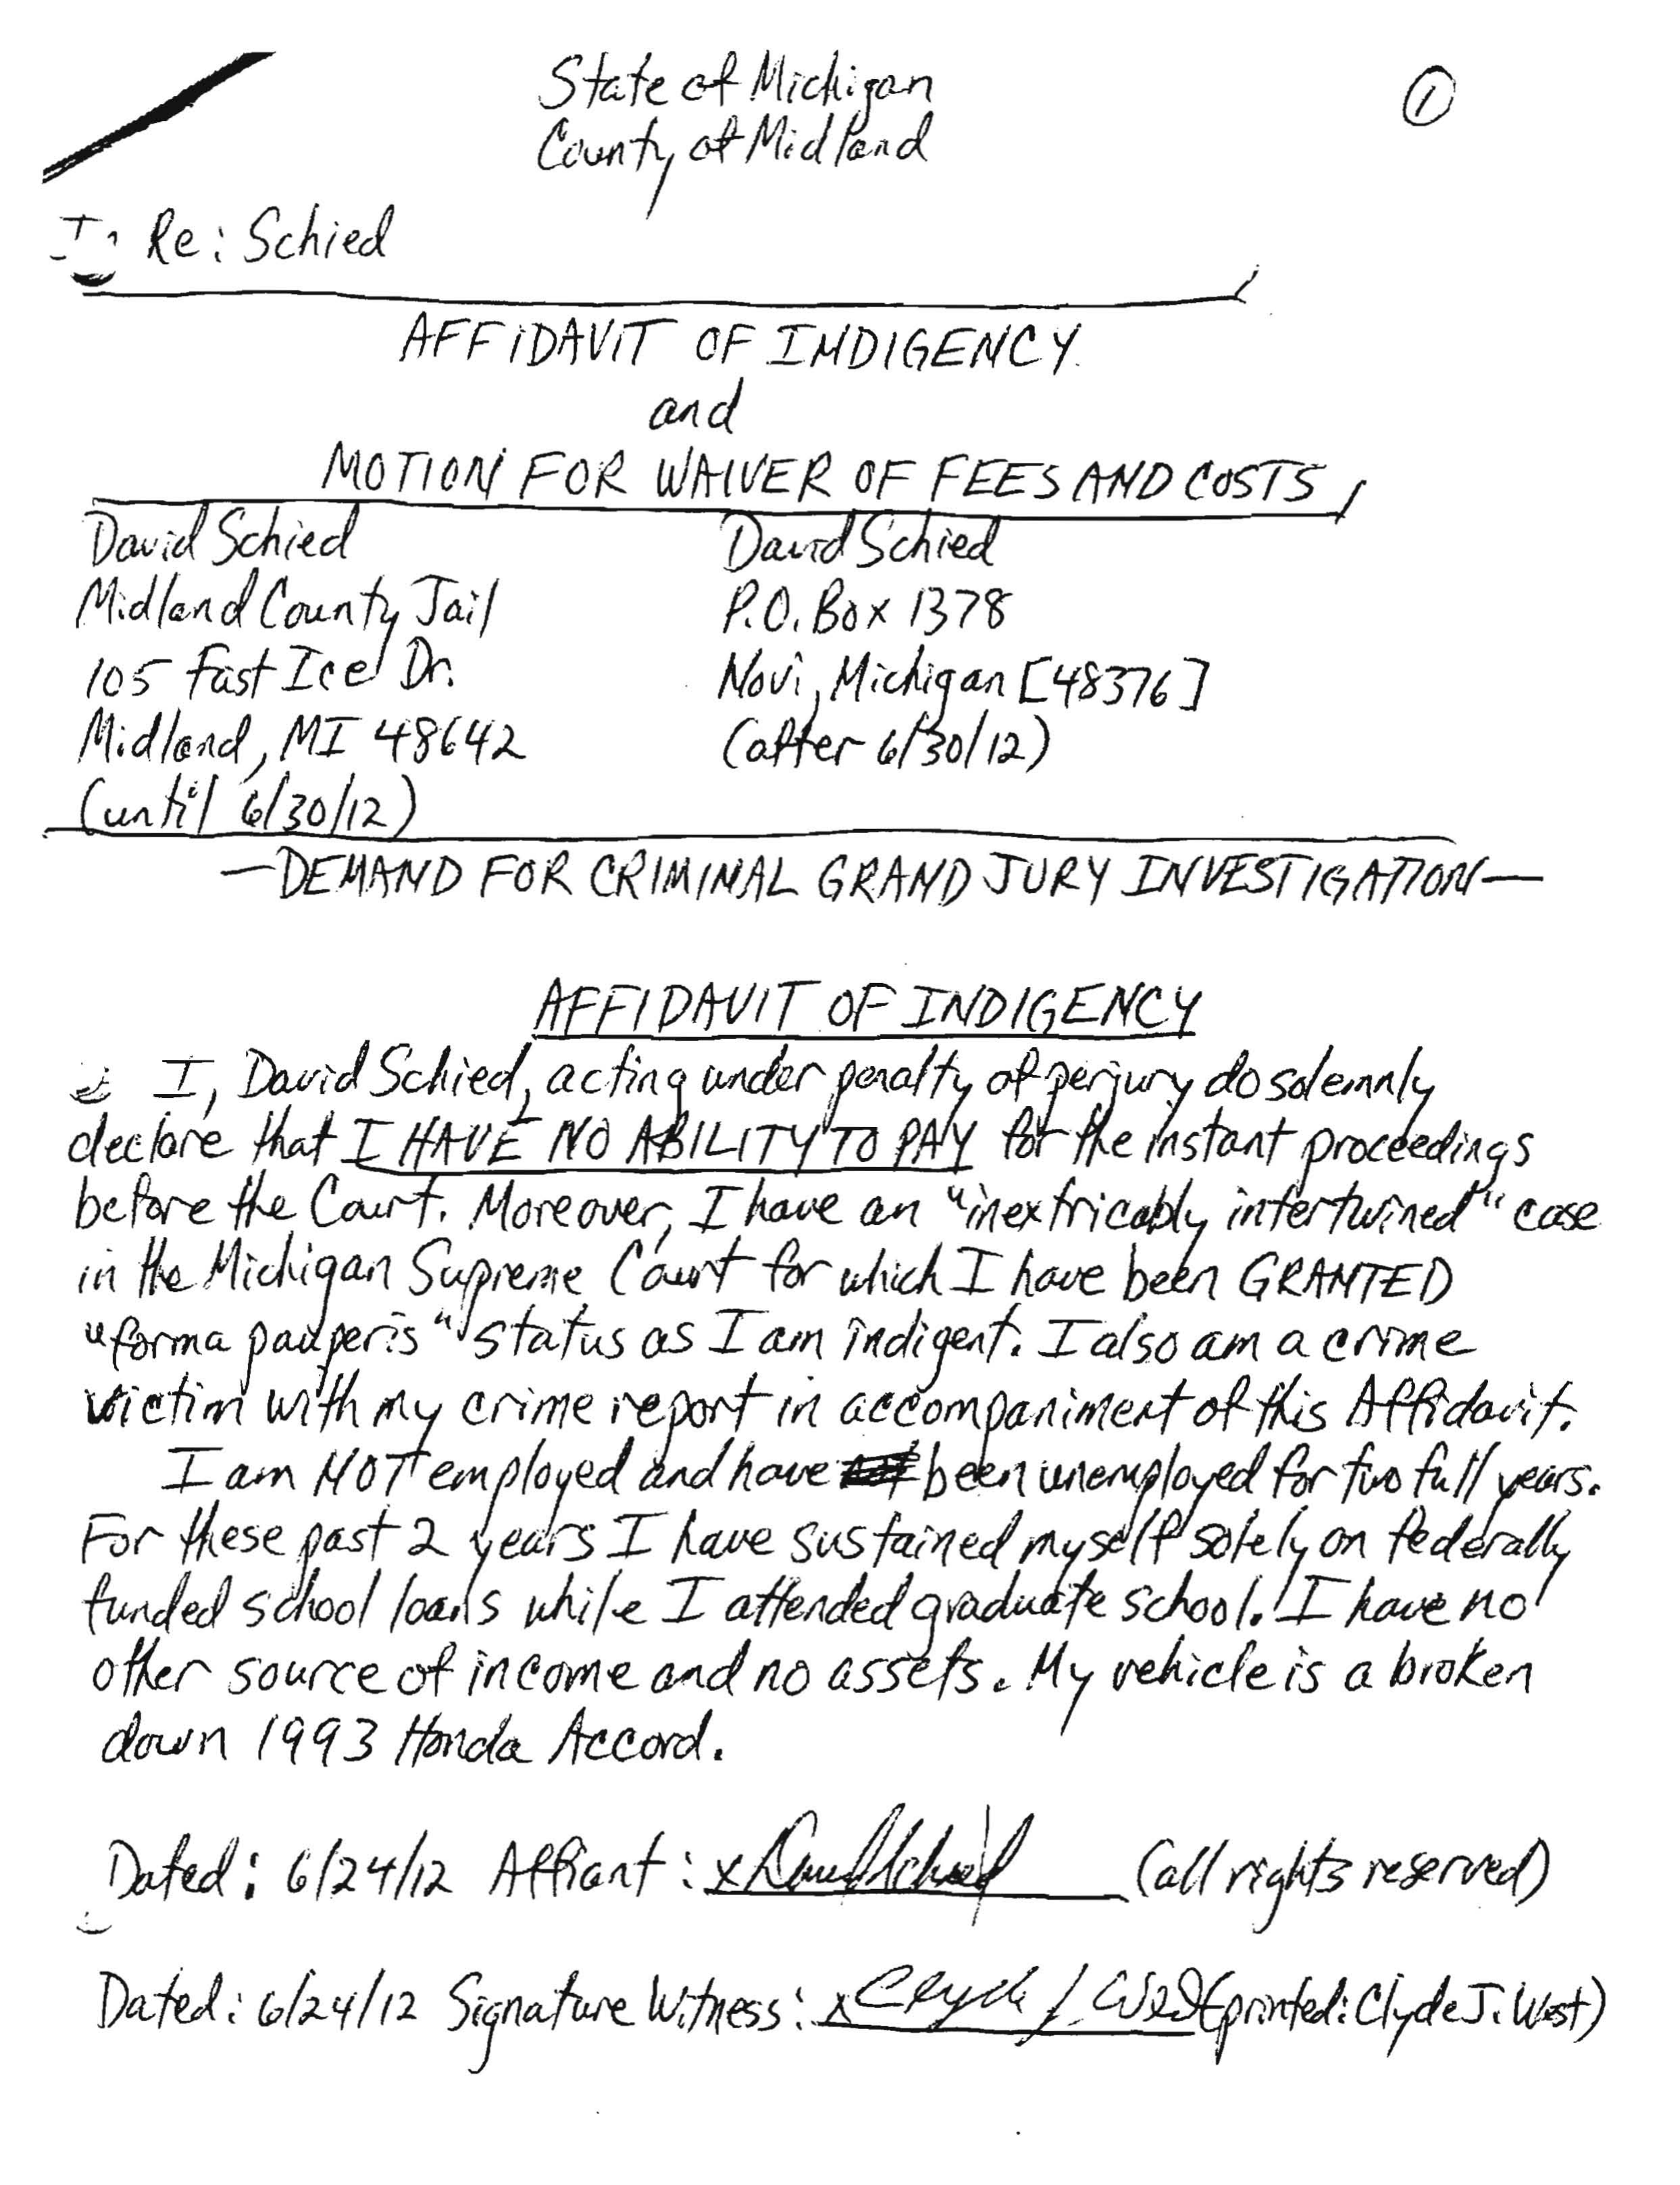 State of Michigan
①
County of Midland
In Re: Schied
AFFIDAVIT OF INDIGENCY
and
MOTION FOR WAIVER OF FEES AND COSTS
David Schied
Midland County Jail
105 Fast Ice Dr.
Midland, MI 48642
(until 6/30/12)
David Schied
P.O. Box 1378
Novi, Michigan [48376]
(after 6/30/12)
—DEMAND FOR CRIMINAL GRAND JURY INVESTIGATION—
AFFIDAVIT OF INDIGENCY
I, David Schied, acting under penalty of perjury do solemnly
declare that I HAVE NO ABILITY TO PAY for the instant proceedings
before the Court. Moreover, I have an "inextricably intertwined" case
in the Michigan Supreme Court for which I have been GRANTED
"forma pauperis" status as I am indigent. I also am a crime
victim with my crime report in accompaniment of this Affidavit.
I am NOT employed and have been unemployed for two full years.
For these past 2 years I have sustained myself solely on federally
funded school loans while I attended graduate school. I have no
other source of income and no assets. My vehicle is a broken
down 1993 Honda Accord.
Dated: 6/24/12 Affiant: x David Schied (all rights reserved)
Dated: 6/24/12 Signature Witness: x Clyde J. West (printed: Clyde J. West)